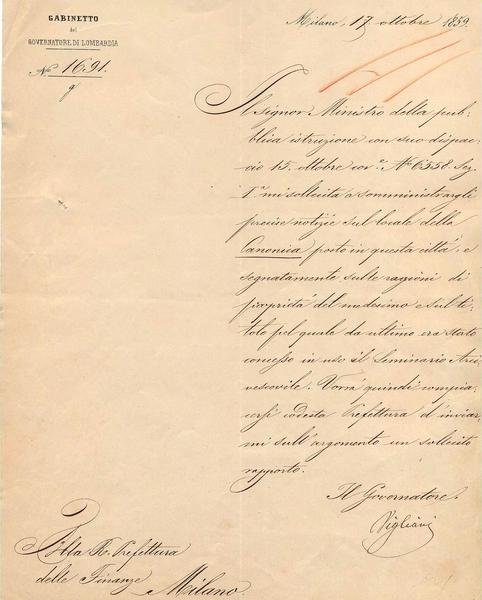 GABINETTO
del
GOVERNATORE DI LOMBARDIA
No. 1691.
g
Milano, 17 ottobre 1859.
Il signor Ministro della pub-
blica istruzione con suo dispac-
cio 15. ottobre corr.e No 6558. Sez.
I.a mi sollecita a somministrargli
precise notizie sul locale della
Canonica posto in questa città, e
segnatamente sulle ragioni di
proprietà del medesimo e sul ti-
tolo pel quale da ultimo era stato
concesso in uso il Seminario Arci-
vescovile. Vorrà quindi compia-
cersi codesta Prefettura d'inviar-
mi sull'argomento un sollecito
rapporto.
Il Governatore.
Vigliani
Alla R. Prefettura
delle Finanze Milano.